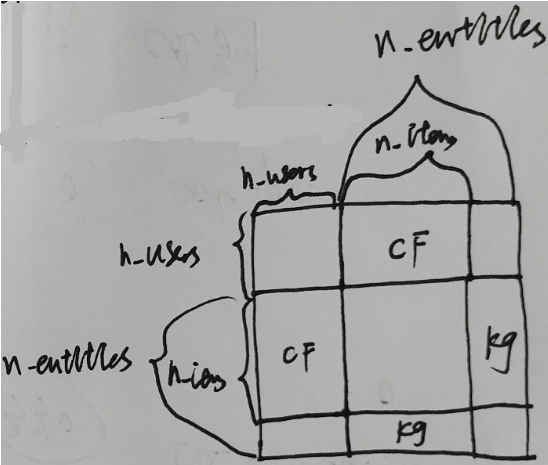 n_entities
n_items
n_users
n_users
CF
n_entities
n_iems
CF
kg
kg